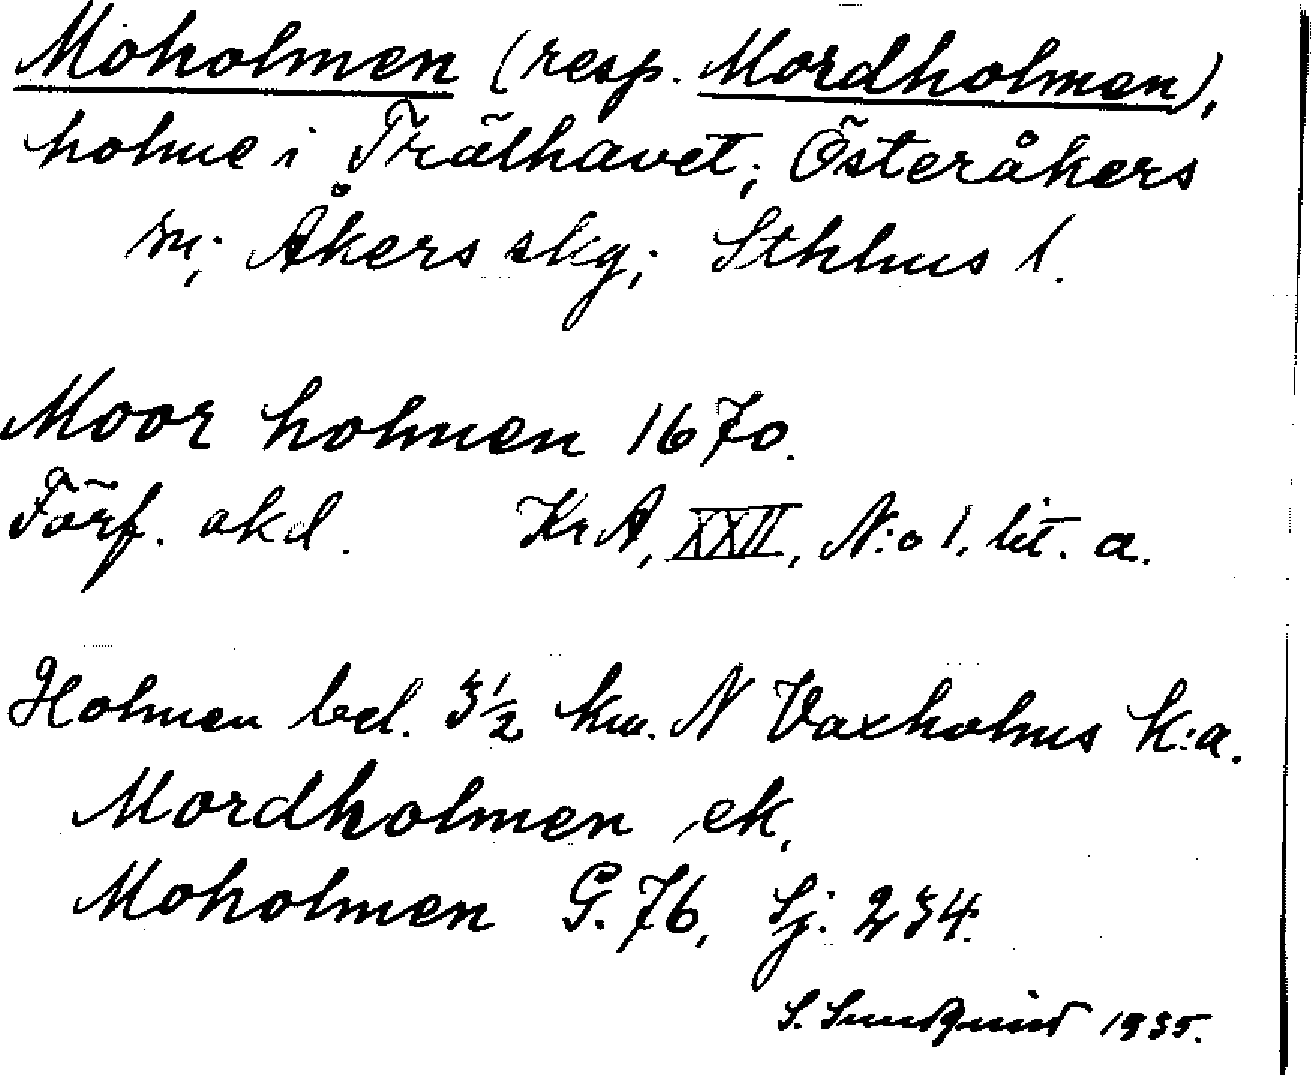 Moholmen (resp. Mordholmen),
holme i Trälhavet; Österåkers
sn; Åkers skg; Sthlms l.
Moor holmen 1670.
Förf. okd. KrA, XXII, N:o 1, lit. a.
Holmen bel. 3½ km. N Vaxholms k:a.
Mordholmen ek.
Moholmen G. 76, Sj: 234.
S. Sundquist 1935.